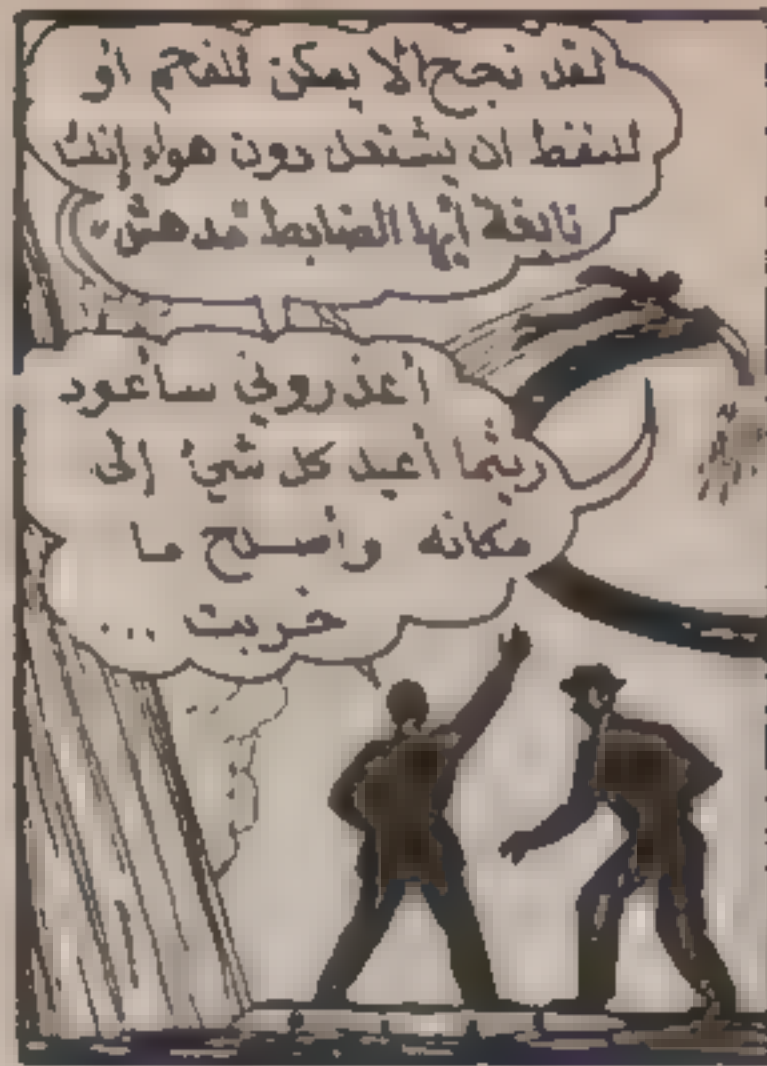 لقد نجح! لا يمكن للفحم أو
للنفط ان يشتعل دون هواء إنك
نابغة أيها الضابط مدهش"
أعذروني سأعود
ريثما أعيد كل شيء إلى
مكانه وأصلح ما
خربت ...